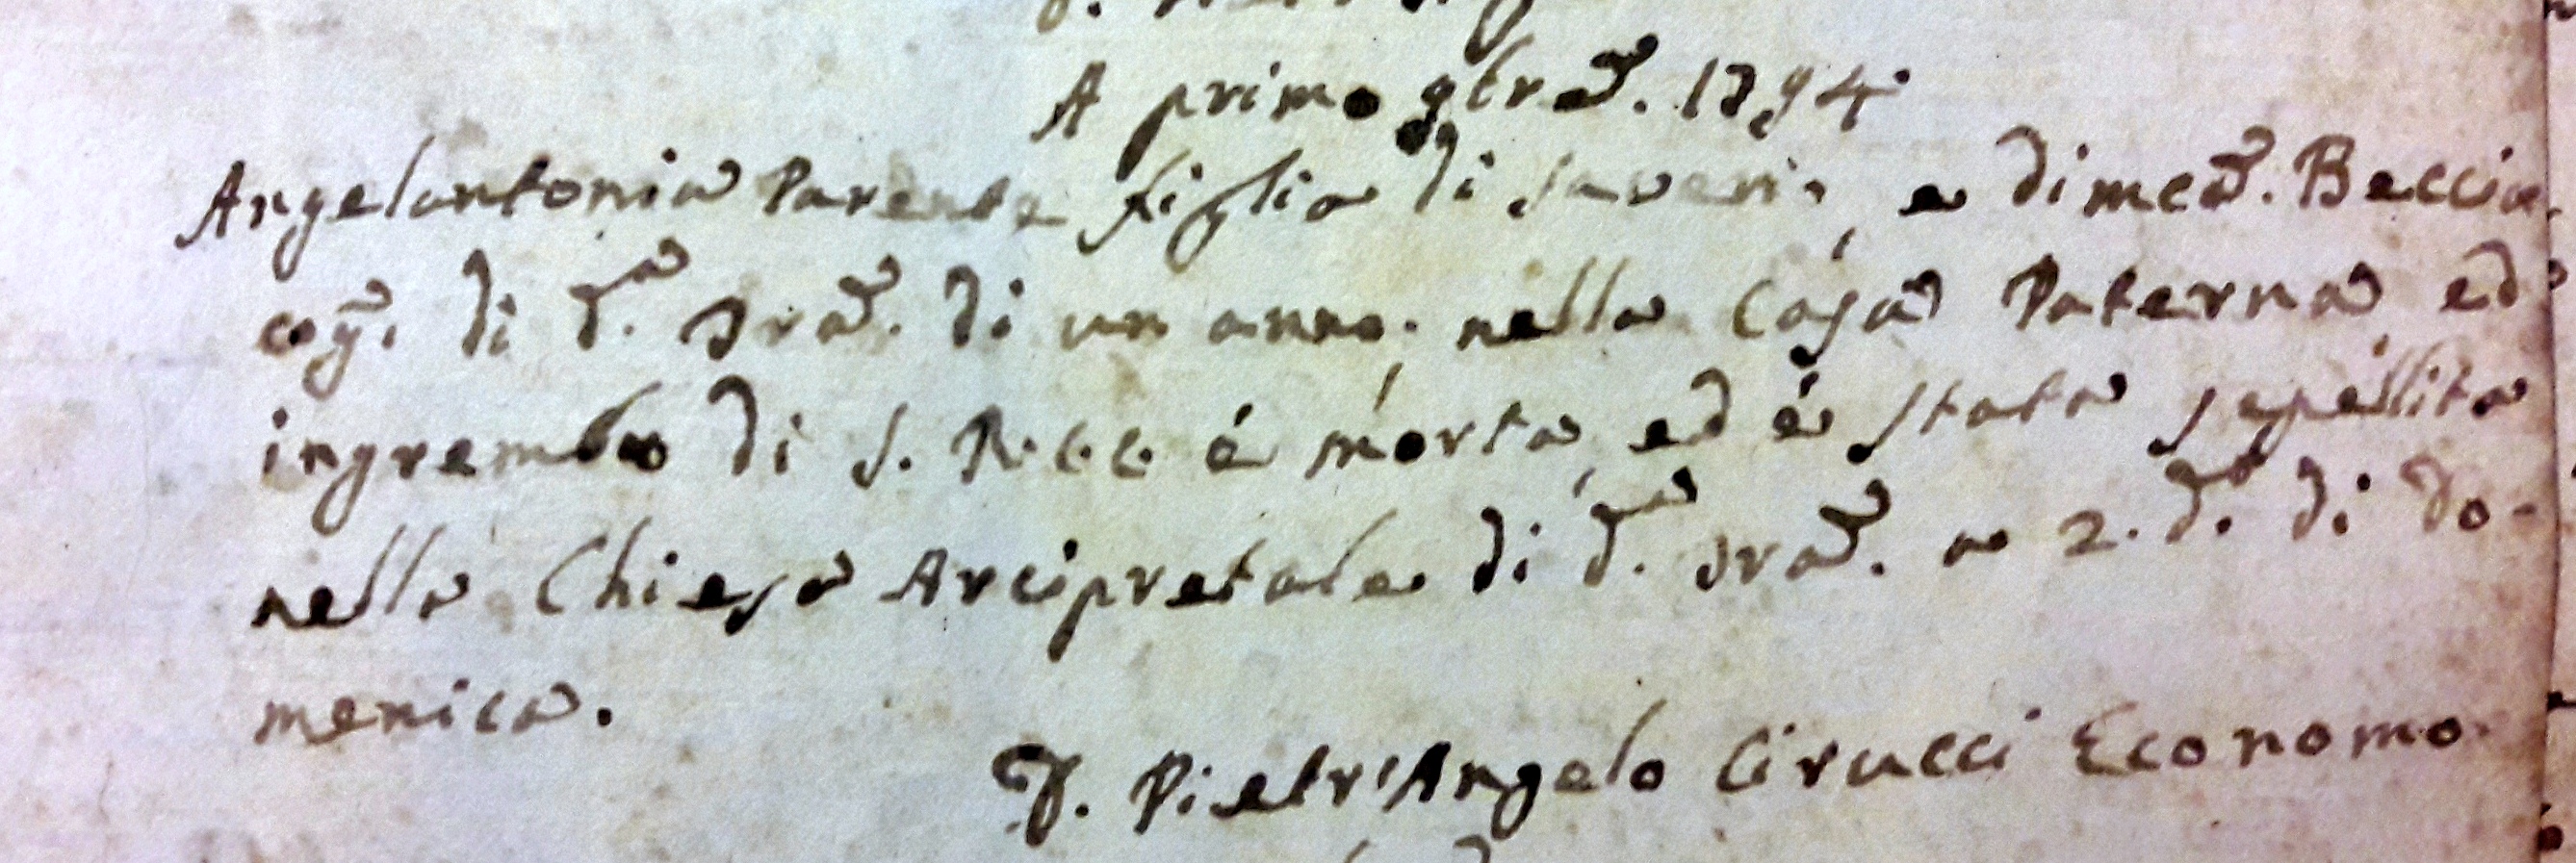 A primo 9bra. 1794
Angelantonia Parente figlia di Saverio, e dimca. Beccia
cog. di da. Tra. di un anno; nella Casa Paterna, ed
ingrembo di S. R. C. C. é morta, ed é stata sepellita
nella Chiesa Arcipretale di da. Tra. a 2. do. di Do-
menica.
D. Pietr'Angelo Cirucci Economo